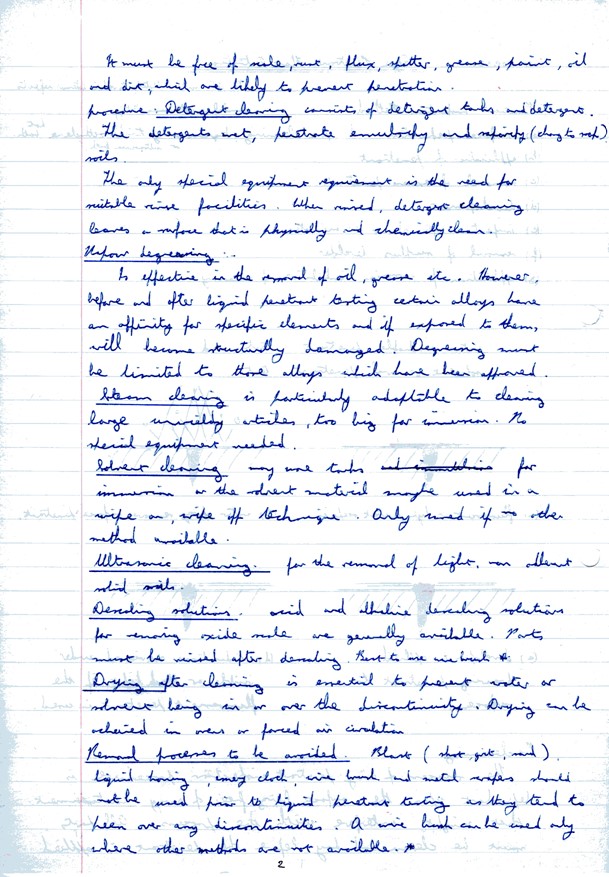 It must be free of scale, rust, flux, spatter, grease, paint, oil
and dirt, which are likely to prevent penetration.
procedure: Detergent cleaning consists of detergent tanks and detergent.
The detergents wet, penetrate emulsify and saponify (chang to soap)
soils.
The only special equipment requirement is the need for
suitable rinse facilities. When rinsed, detergent cleaning
leaves a surface that is physically and chemically clean.
Vapour degreasing.
Is effective in the removal of oil, grease etc. However,
before and after liquid penetrant testing certain alloys have
an affinity for specific elements and if exposed to them,
will become structurally damaged. Degreasing must
be limited to those alloys which have been approved.
Steam cleaning is particularly adaptable to cleaning
large unwieldy articles, too big for immersion. No
special equipment needed.
Solvent cleaning may use tanks for
immersion or the solvent material maybe used in a
wipe on, wipe off technique. Only used if no other
method available.
Ultrasonic cleaning. for the removal of light, non adherent
solid soils.
Descaling solutions. acid and alkaline descaling solutions
for removing oxide scale are generally available. Parts
must be rinsed after descaling. Best to use wire brush *
Drying after cleaning is essential to prevent water or
solvent being in or over the discontinuity. Drying can be
achieved in ovens or forced air circulation
Removal processes to be avoided. Blast (shot, grit, sand).
liquid honing, emery cloth, wire brush and metal scrapers should
not be used, prior to liquid penetrant testing as they tend to
peen over any discontinuities. A wire brush can be used only
where other methods are not available. *
2